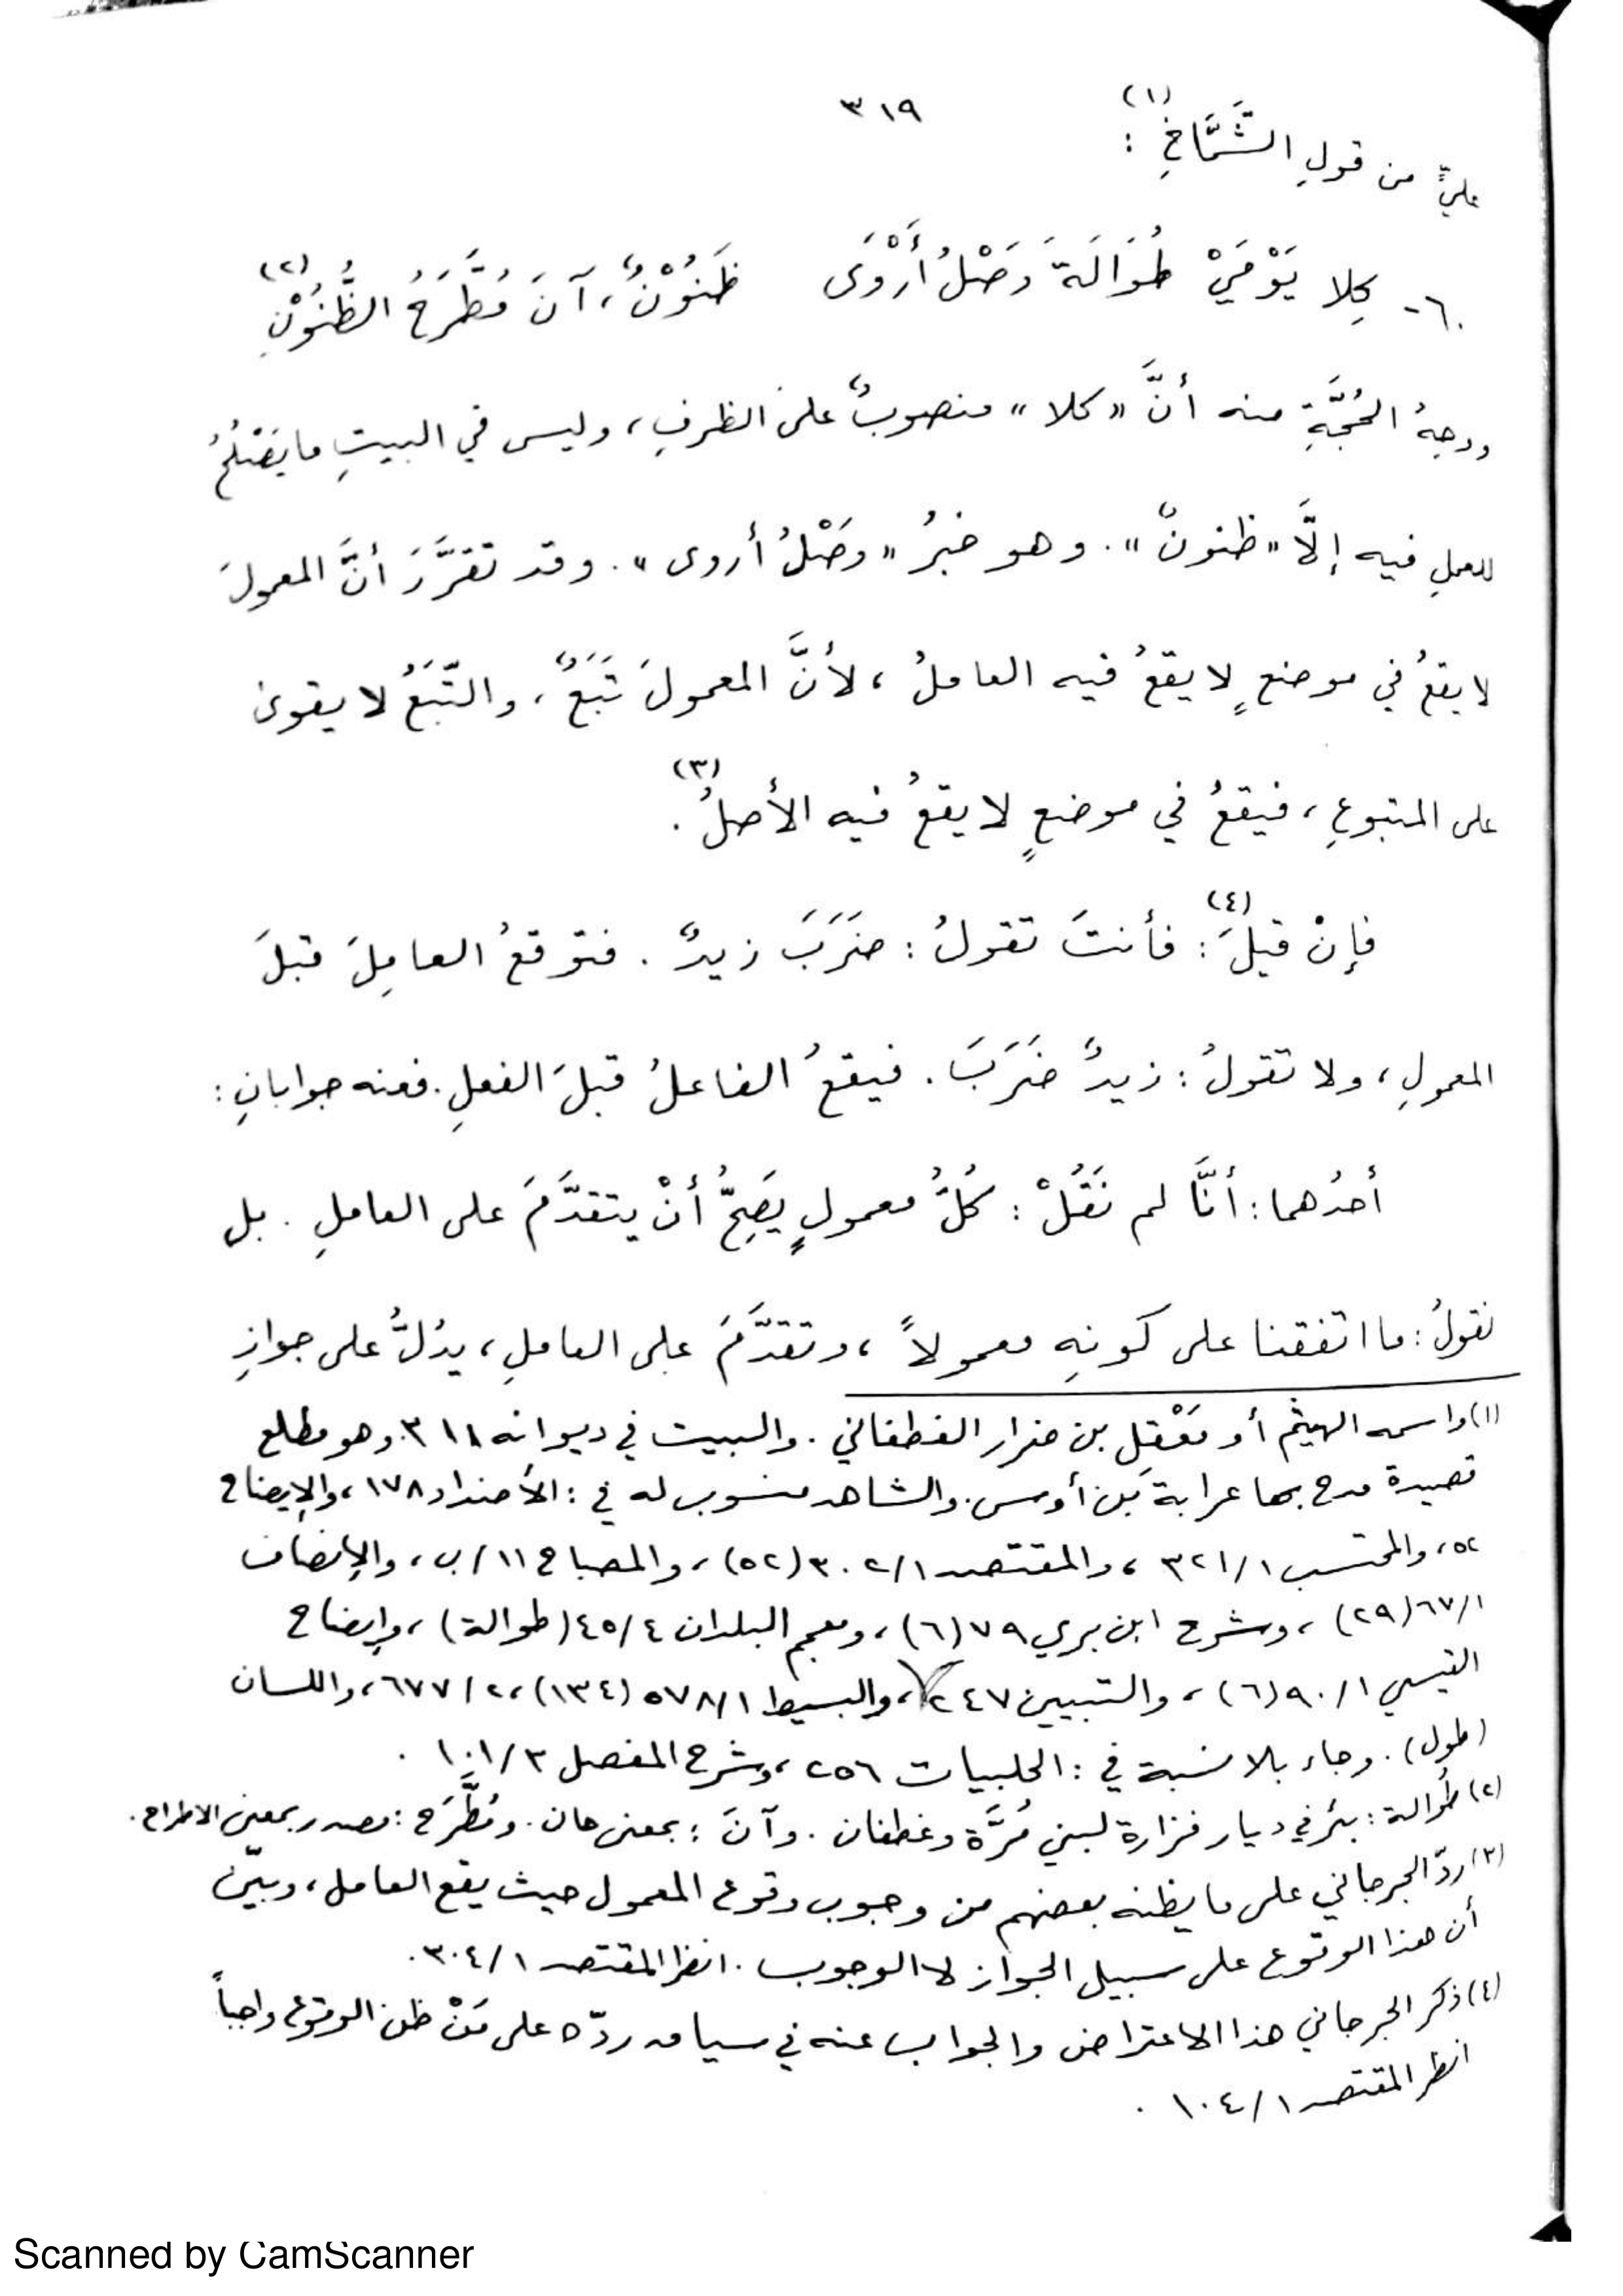 ٣١٩
عليٍّ من قولِ الشَّمَّاخِ (١) :
٦٠- كِلا يَوْمَيْ طُوَالَةَ وَصْلُ أَرْوَى ظَنُوْنٌ، آنَ مُطَّرَحُ الظُّنُوْنِ (٢)
ووجهُ الحُجَّةِ منه أنَّ «كلا» منصوبٌ على الظرفِ، وليس في البيتِ ما يَصْلُحُ
للعملِ فيه إلَّا «ظنونٌ». وهو خبرُ «وصْلُ أروى». وقد تقرَّرَ أنَّ المعمولَ
لا يقعُ في موضعٍ لا يقعُ فيه العاملُ، لأنَّ المعمولَ تَبَعٌ، والتَّبَعُ لا يقوى
على المتبوعِ، فيقعُ في موضعٍ لا يقعُ فيه الأصلُ (٣).
فإنْ قيلَ (٤): فأنتَ تقولُ: ضَرَبَ زيدٌ. فتوقعُ العامِلَ قبلَ
المعمولِ، ولا تقولُ: زيدٌ ضَرَبَ. فيقعُ الفاعلُ قبلَ الفعلِ. فعنه جوابانِ:
أحدُهما: أنَّا لم نَقُلْ: كُلُّ معمولٍ يَصِحُّ أنْ يتقدَّمَ على العاملِ. بل
نقولُ: ما اتفقنا على كونِهِ معمولاً، وتقدَّمَ على العاملِ، يدُلُّ على جوازِ
(١) واسمه الهيثم أو مَعْقِل بن ضرار الغطفاني. والبيت في ديوانه ٣١٨. وهو مطلع
قصيدة مدح بها عرابة بن أوس. والشاهد منسوب له في: الأضداد ١٧٨، والإيضاح
٥٢، والمحتسب ٣٢١/١، والمقتصد ٣٠٢/١ (٥٢)، والمصباح ١١/ب، والإنصاف
٦٧/١ (٢٩)، وشرح ابن بري ٧٩ (٦)، ومعجم البلدان ٤٥/٤ (طوالة)، وإيضاح
القيسي ٩٠/١ (٦)، والتبيين ٢٤٧، والبسيط ٥٧٨/١ (١٣٤)، ٦٧٧/٢، واللسان
(طول). وجاء بلا نسبة في: الحلبيات ٢٥٦، وشرح المفصل ١٠١/٣.
(٢) طُوالة: بئر في ديار فزارة لبني مُرَّة وغطفان. وآنَ: بمعنى حان. ومُطَّرَح: مصدر بمعنى الاطراح.
(٣) ردّ الجرجاني على ما يظنه بعضهم من وجوب وقوع المعمول حيث يقع العامل، وبيّن
أن هذا الوقوع على سبيل الجواز لا الوجوب. انظر المقتصد ٣٠٤/١.
(٤) ذكر الجرجاني هذا الاعتراض والجواب عنه في سياق ردّه على مَنْ ظن الوقوع واجباً
انظر المقتصد ١٠٤/١.
Scanned by CamScanner